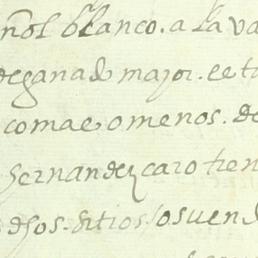 ñol blanco. a la va
de ganado major. e e ta
comae o menos. de
hernandez caro tien
dhos. sitios los vend